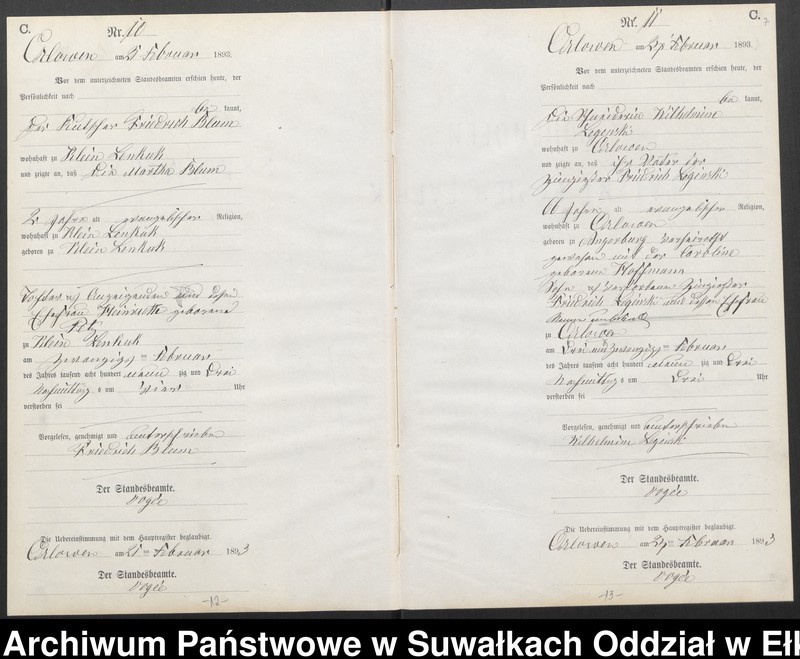 C.
Nr. 10
Orlowen am 21ten Februar 1893.
Vor dem unterzeichneten Standesbeamten erschien heute, der
Persönlichkeit nach
be kannt,
der Kutscher Friedrich Blum
wohnhaft zu Klein Lenkuk
und zeigte an, daß die Martha Blum
2 Jahre alt evangelischer Religion,
wohnhaft zu Klein Lenkuk
geboren zu Klein Lenkuk
Tochter des Anzeigenden und dessen
Ehefrau Heinriette geborene
zu Klein Lenkuk
am zwanzigsten Februar
des Jahres tausend acht hundert neunzig und drei
Nachmittags um vier Uhr
verstorben sei
Vorgelesen, genehmigt und unterschrieben
Friedrich Blum
Der Standesbeamte.
Vogée
Die Uebereinstimmung mit dem Hauptregister beglaubigt.
Orlowen am 21ten Februar 1893
Der Standesbeamte.
Vogée
-12-
C.
Nr. 11
Orlowen am 24ten Februar 1893.
Vor dem unterzeichneten Standesbeamten erschien heute, der
Persönlichkeit nach
be kannt,
die Schneiderin Wilhelmine
wohnhaft zu Orlowen
und zeigte an, daß ihr Vater der
Friedrich
Jahre alt evangelischer Religion,
wohnhaft zu Orlowen
geboren zu Angerburg verheirathet
gewesen mit der Caroline
geborenen Hoffmann
Sohn des verstorbenen
Friedrich und dessen Ehefrau
zu Orlowen
am drei und zwanzigsten Februar
des Jahres tausend acht hundert neunzig und drei
Nachmittags um drei Uhr
verstorben sei
Vorgelesen, genehmigt und unterschrieben
Wilhelmine
Der Standesbeamte.
Vogée
Die Uebereinstimmung mit dem Hauptregister beglaubigt.
Orlowen am 24ten Februar 1893
Der Standesbeamte.
Vogée
-13-
Archiwum Państwowe w Suwałkach Oddział w Eł